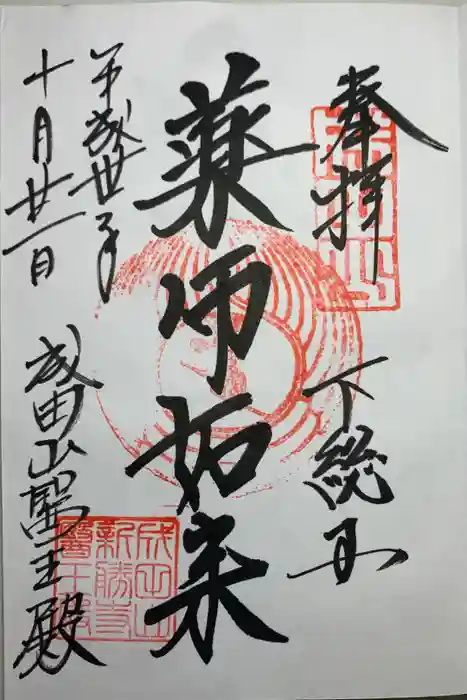 奉拝
下総国
薬師如来
平成丗年
十月廿一日
成田山醫王殿
成田山
新勝寺
醫王殿